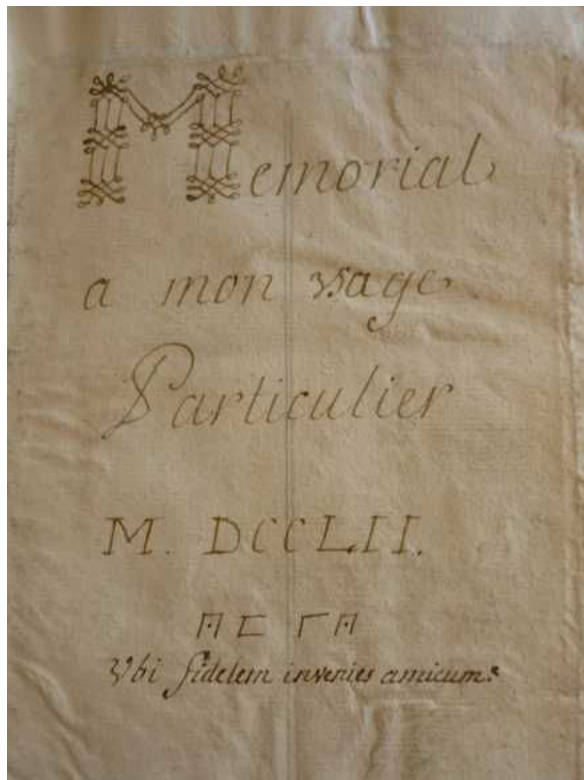 Memorial
a mon vsage
Particulier
M. DCCLII.
Vbi fidelem invenies amicum?